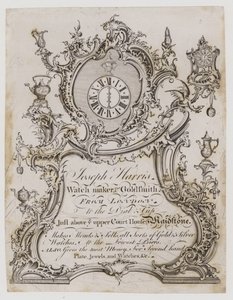 Joseph Harris,
Watch maker & Goldsmith,
FROM LONDON,
to the Dial
Just above ye upper Court House Maidstone.
Makes, Mends & Sells, all Sorts of Gold & Silver
Watches, At the lowest Prices.
Also Gives the most Money for Second hand
Plate, Jewels, and Watches, &c.